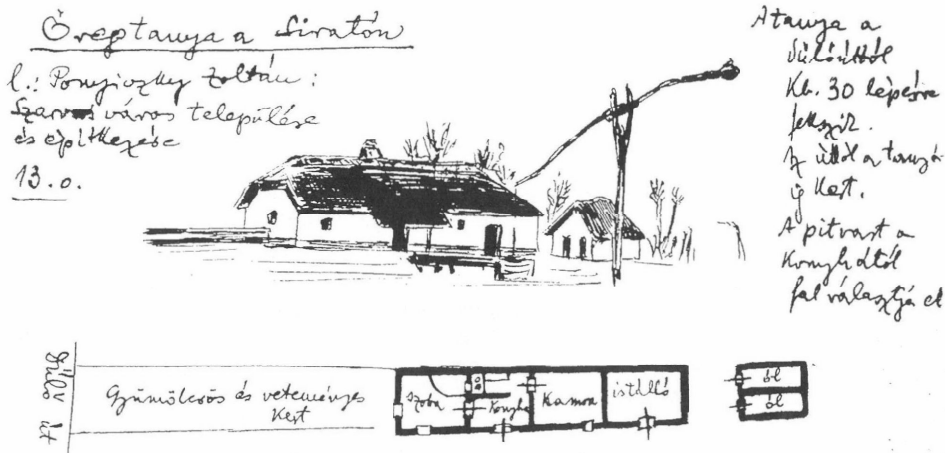 Öregtanya a Siratón
l.: Ponyiczky Zoltán:
Szarvas város települése
és építkezése
13. o.
A tanya a
dűlőúttól
Kb. 30 lépésre
fekszik.
Az úttól a tanyá-
ig Kert.
A pitvart a
Konyhától
fal választja el
Dűlő út
Gyümölcsös és veteményes
Kert
Szoba
Konyha
Kamra
istálló
ól
ól